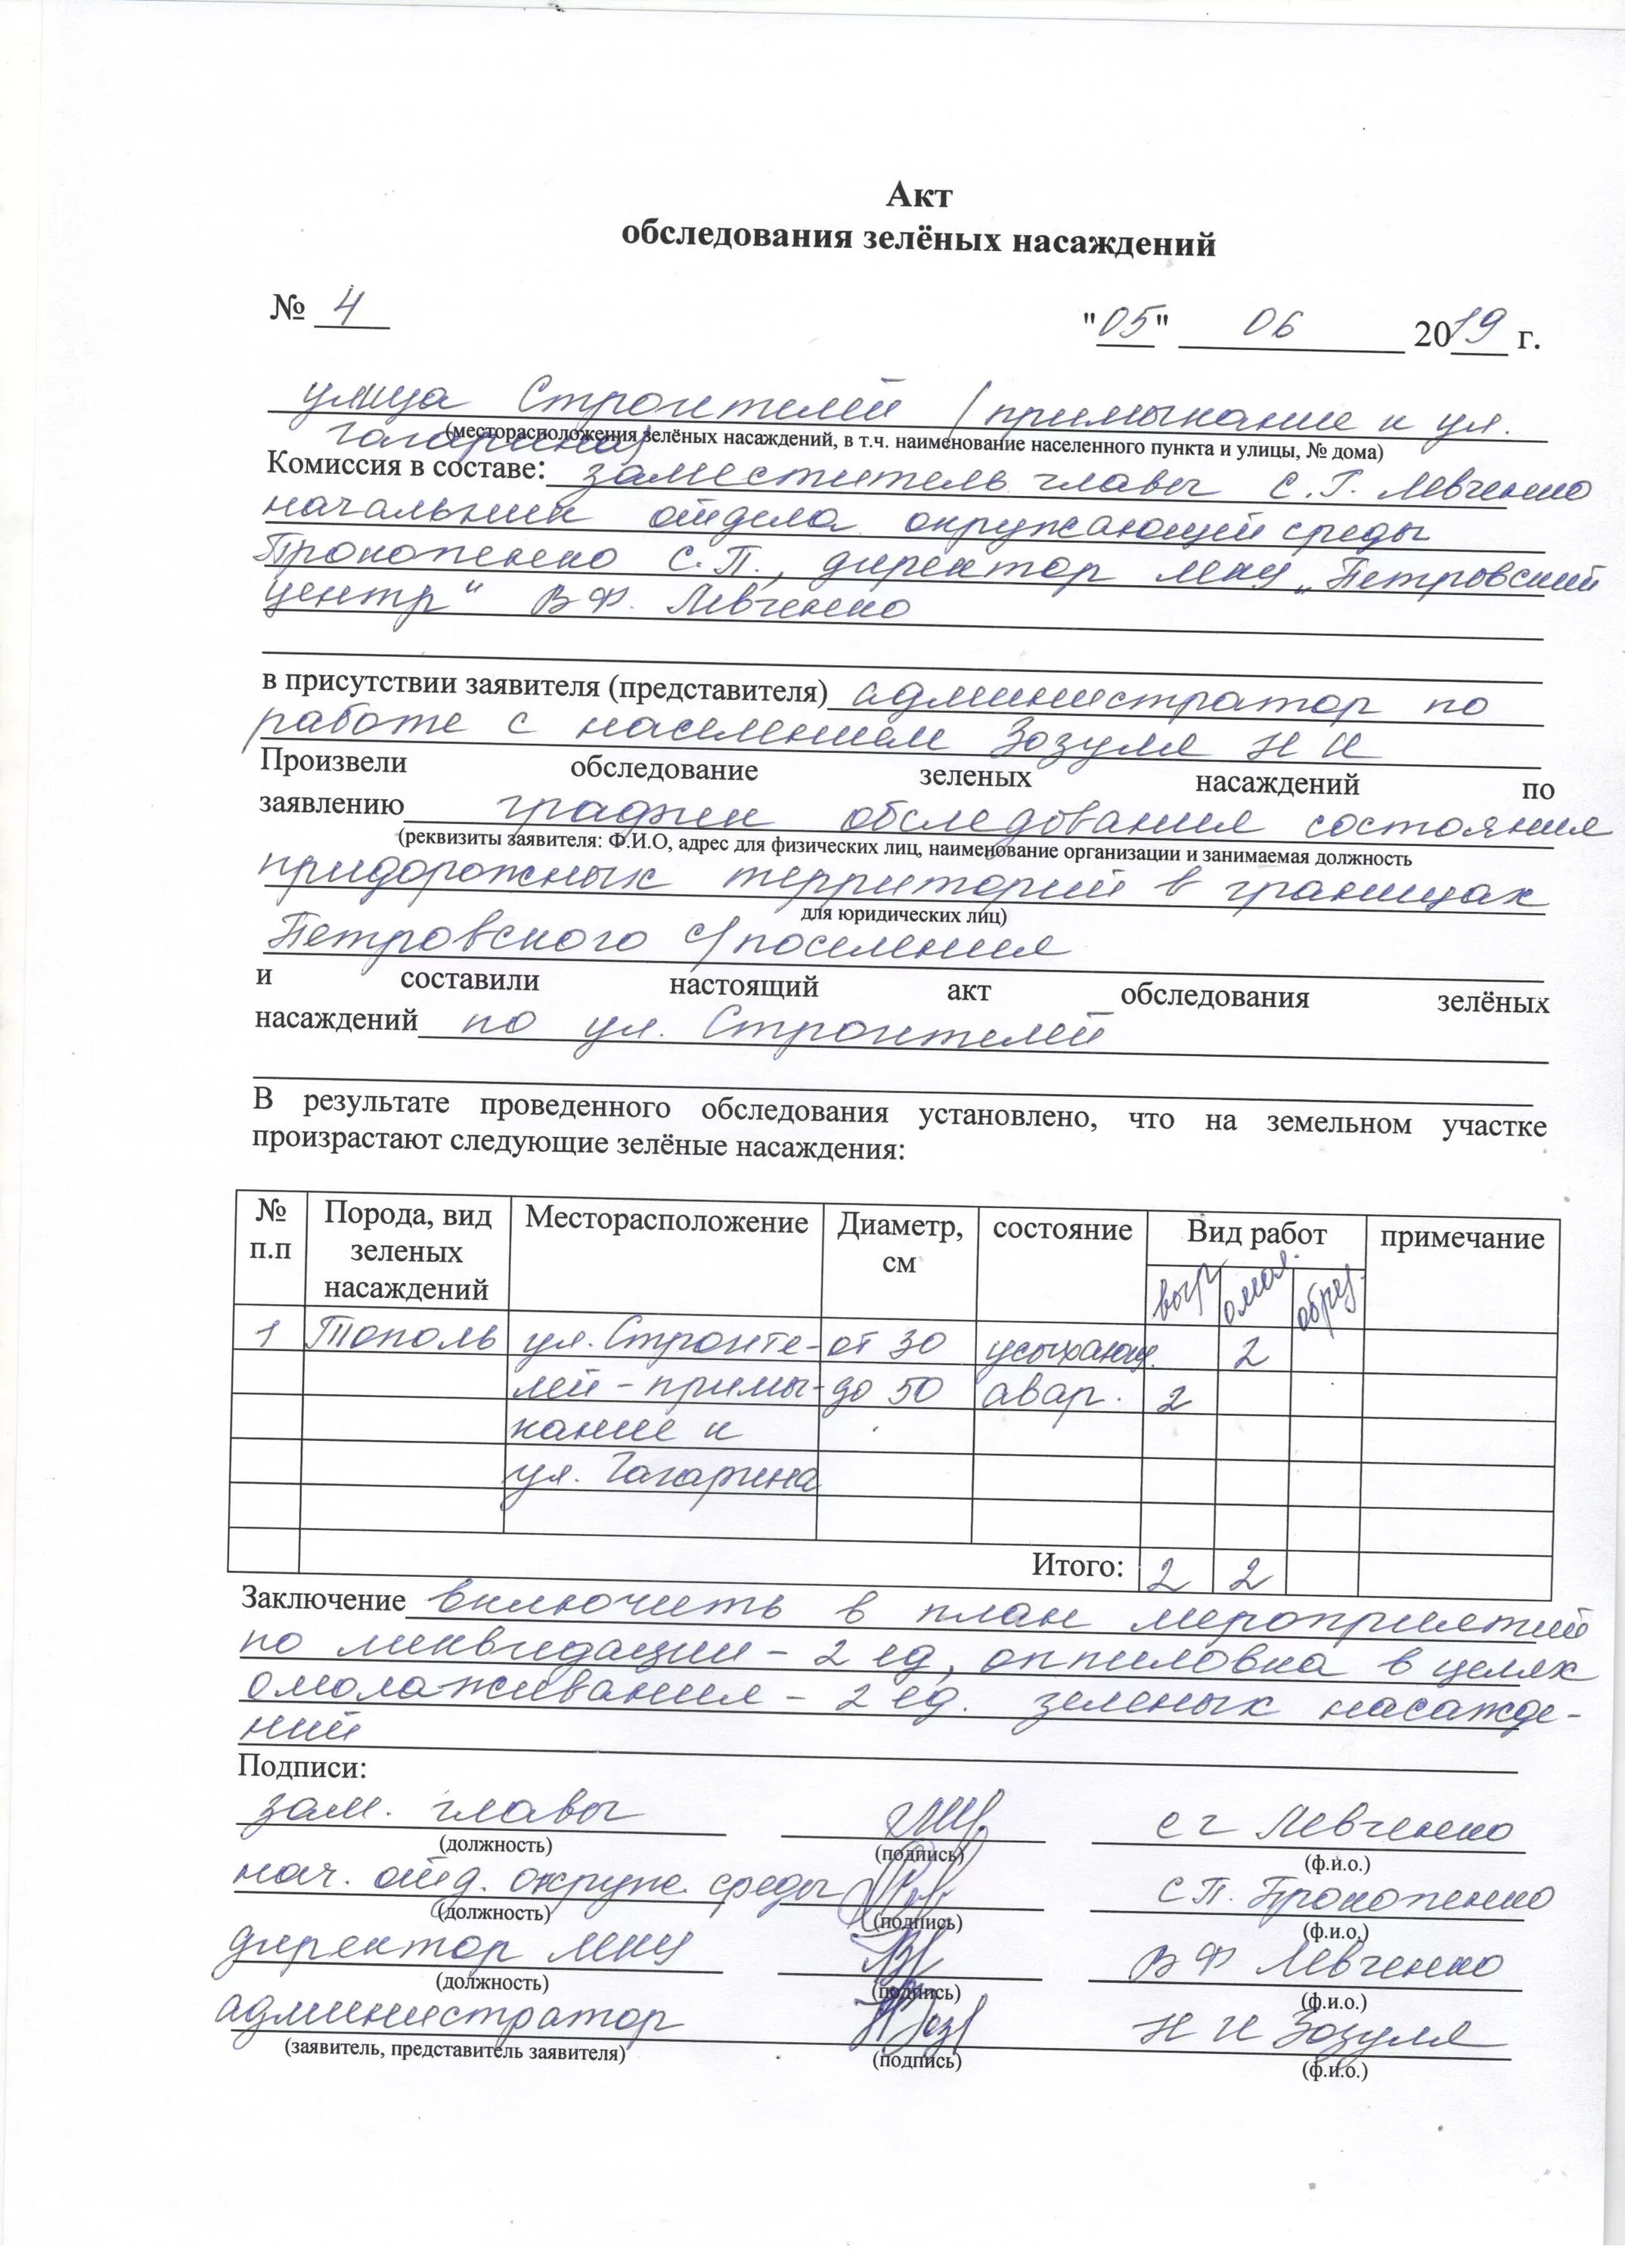 Акт
обследования зелёных насаждений
№ 4 "05" 06 2019 г.
улица Строителей (примыкание к ул.
Гагарина)
(месторасположения зелёных насаждений, в т.ч. наименование населенного пункта и улицы, № дома)
Комиссия в составе: заместитель главы С.Г. Левченко
начальник отдела окружающей среды
Прокопенко С.П., директор МКУ „Петровский
центр" В Ф. Левченко
в присутствии заявителя (представителя) администратор по
работе с населением Зозуля Н И
Произвели обследование зеленых насаждений по
заявлению график обследования состояния
(реквизиты заявителя: Ф.И.О, адрес для физических лиц, наименование организации и занимаемая должность
придорожных территорий в границах
для юридических лиц)
Петровского с/поселения
и составили настоящий акт обследования зелёных
насаждений по ул. Строителей
В результате проведенного обследования установлено, что на земельном участке
произрастают следующие зелёные насаждения:
№ п.п Порода, вид зеленых насаждений Месторасположение Диаметр, см состояние Вид работ примечание
выр омол. обрез.
1 Тополь ул. Строите- от 30 усыхающ. 2
лей - примы- до 50 авар. 2
кание к
ул. Гагарина
Итого: 2 2
Заключение включить в план мероприятий
по ликвидации - 2 ед, оппиловка в целях
омолаживания - 2 ед. зеленых насажде-
ний
Подписи:
зам. главы С Г Левченко
(должность) (подпись) (ф.и.о.)
нач. отд. окруж. среды С П. Прокопенко
(должность) (подпись) (ф.и.о.)
директор МКУ В Ф Левченко
(должность) (подпись) (ф.и.о.)
администратор Н И Зозуля
(заявитель, представитель заявителя) (подпись) (ф.и.о.)